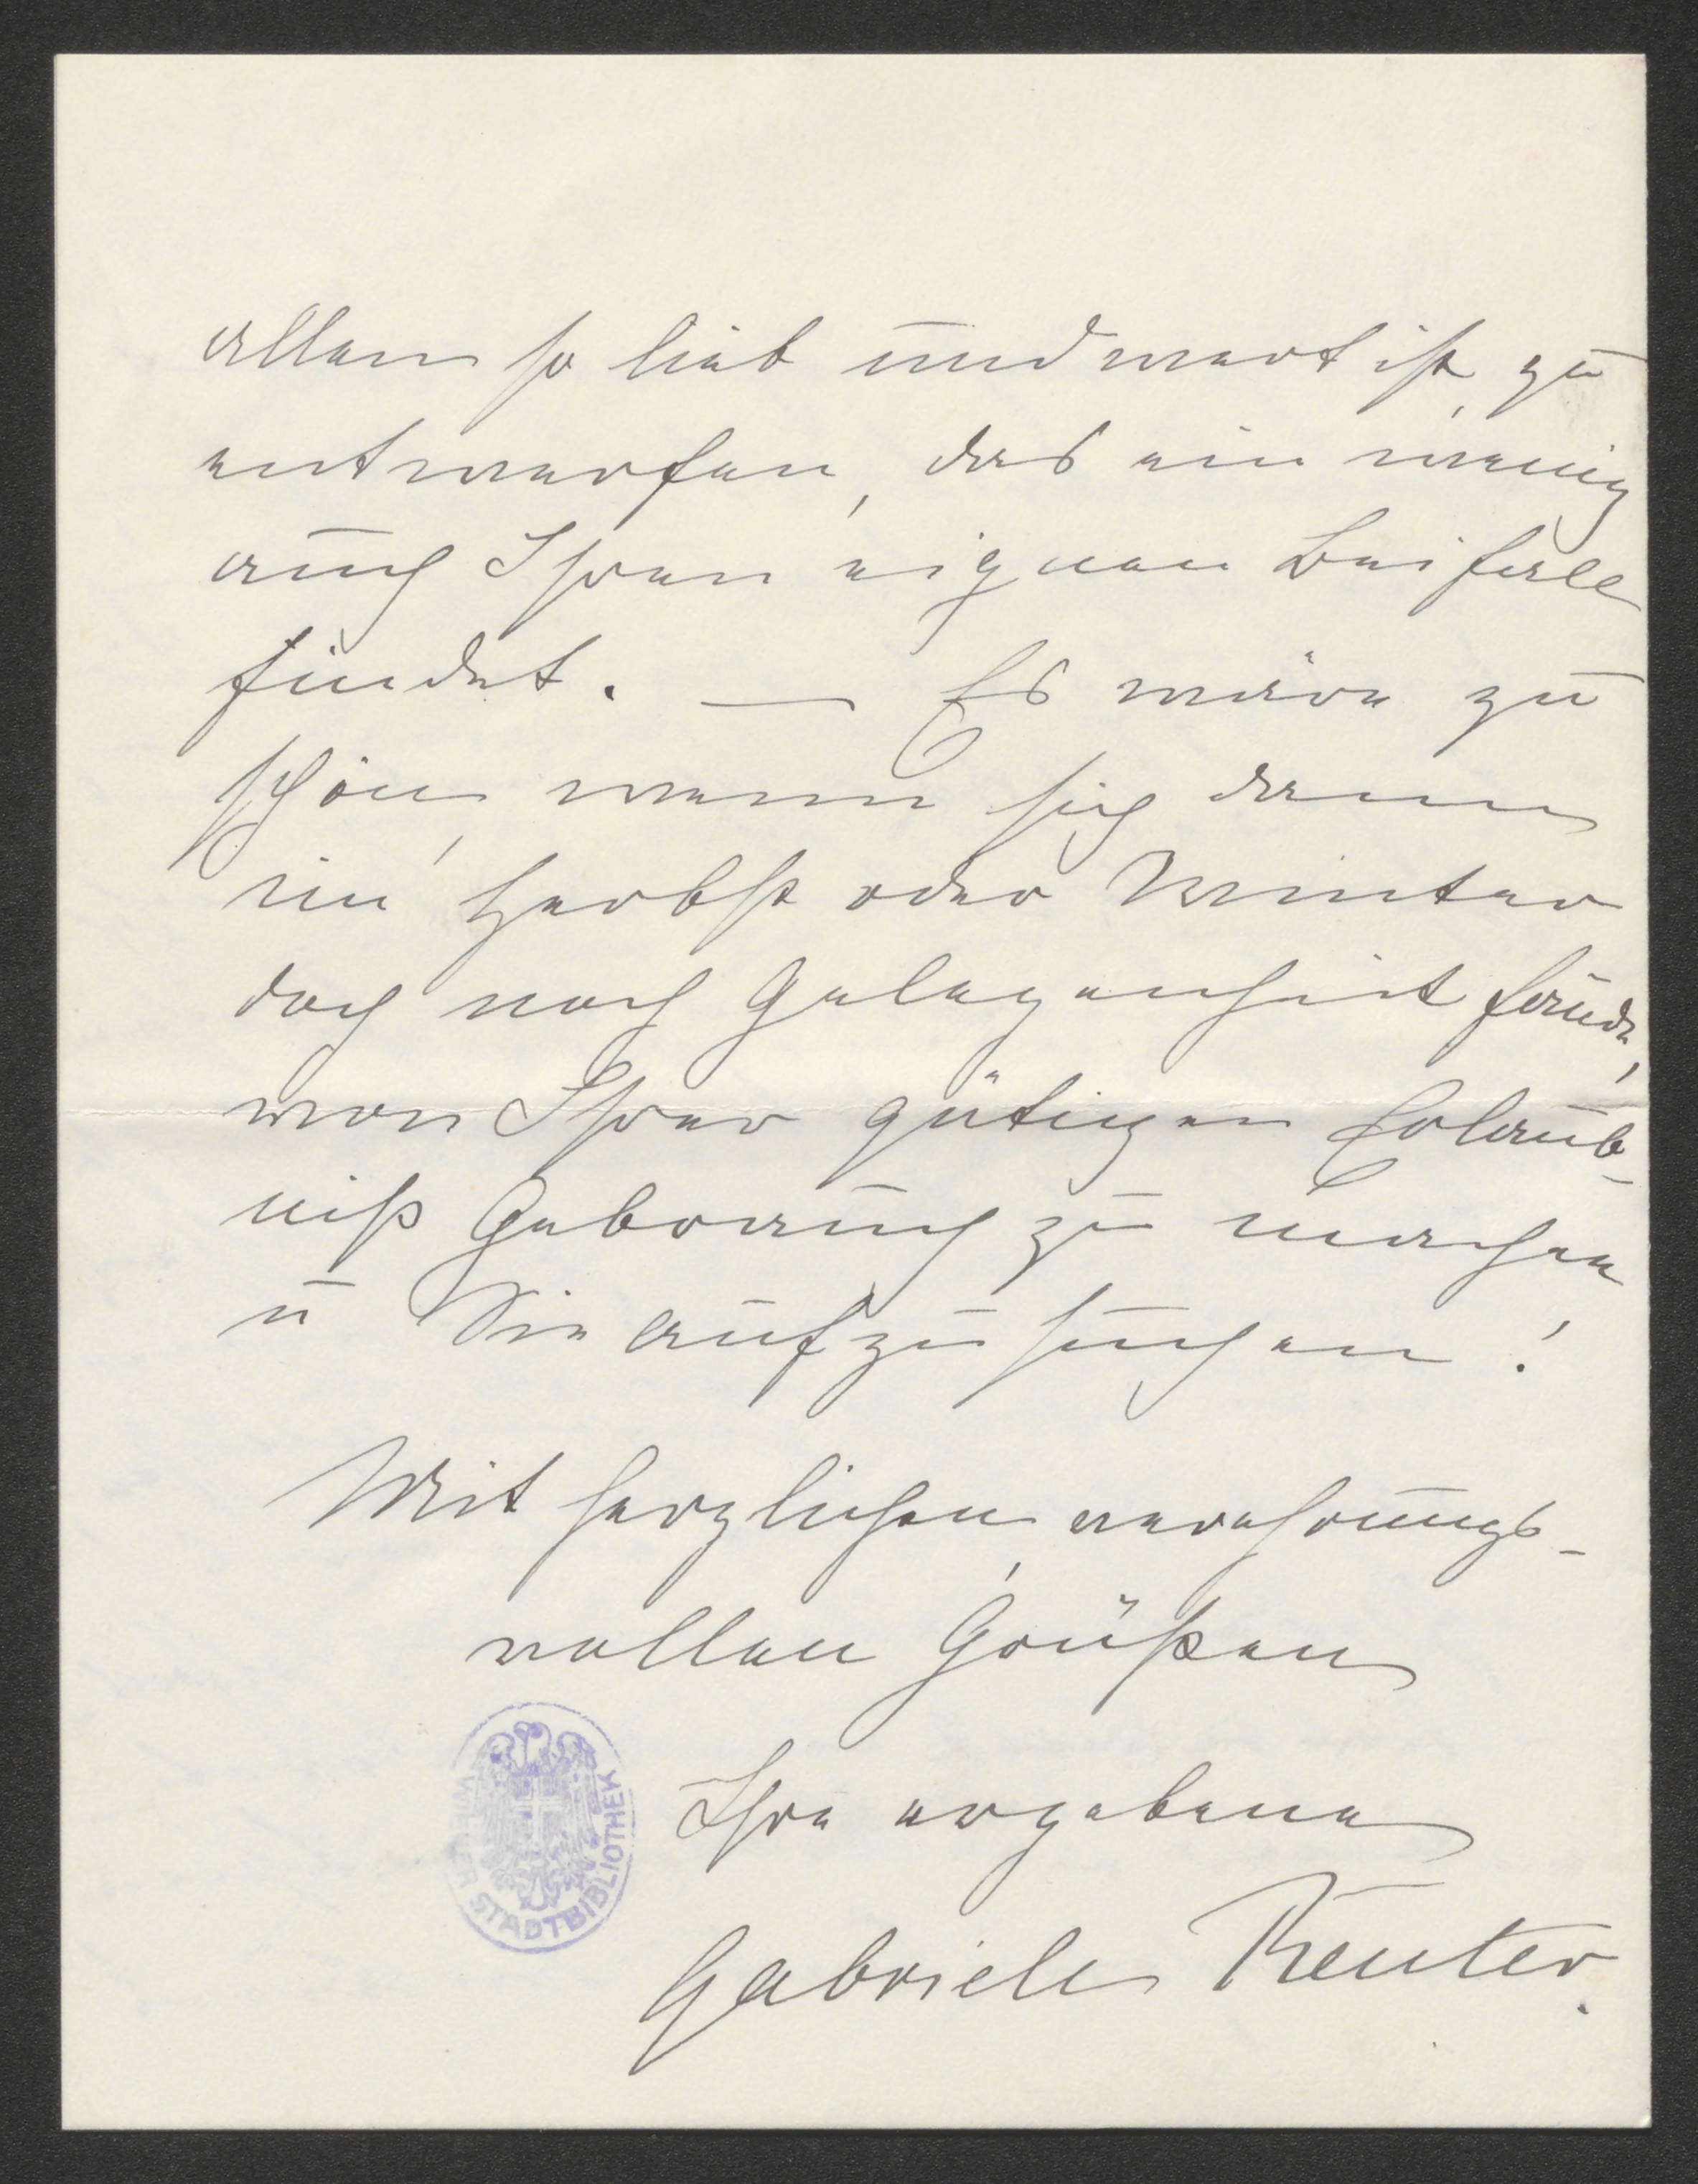 allen so lieb und wert ist, zu
entwerfen, das ein wenig
auch Ihren eignen Beifall
findet. — Es wäre zu
schön, wenn sich dann
im Herbst oder Winter
doch noch Gelegenheit fände,
von Ihrer gütigen Erlaub-
niß Gebrauch zu machen
u Sie aufzusuchen!
Mit herzlichen, verehrungs-
vollen Grüßen
Ihre ergebene
Gabriele Reuter.
WIENER STADTBIBLIOTHEK